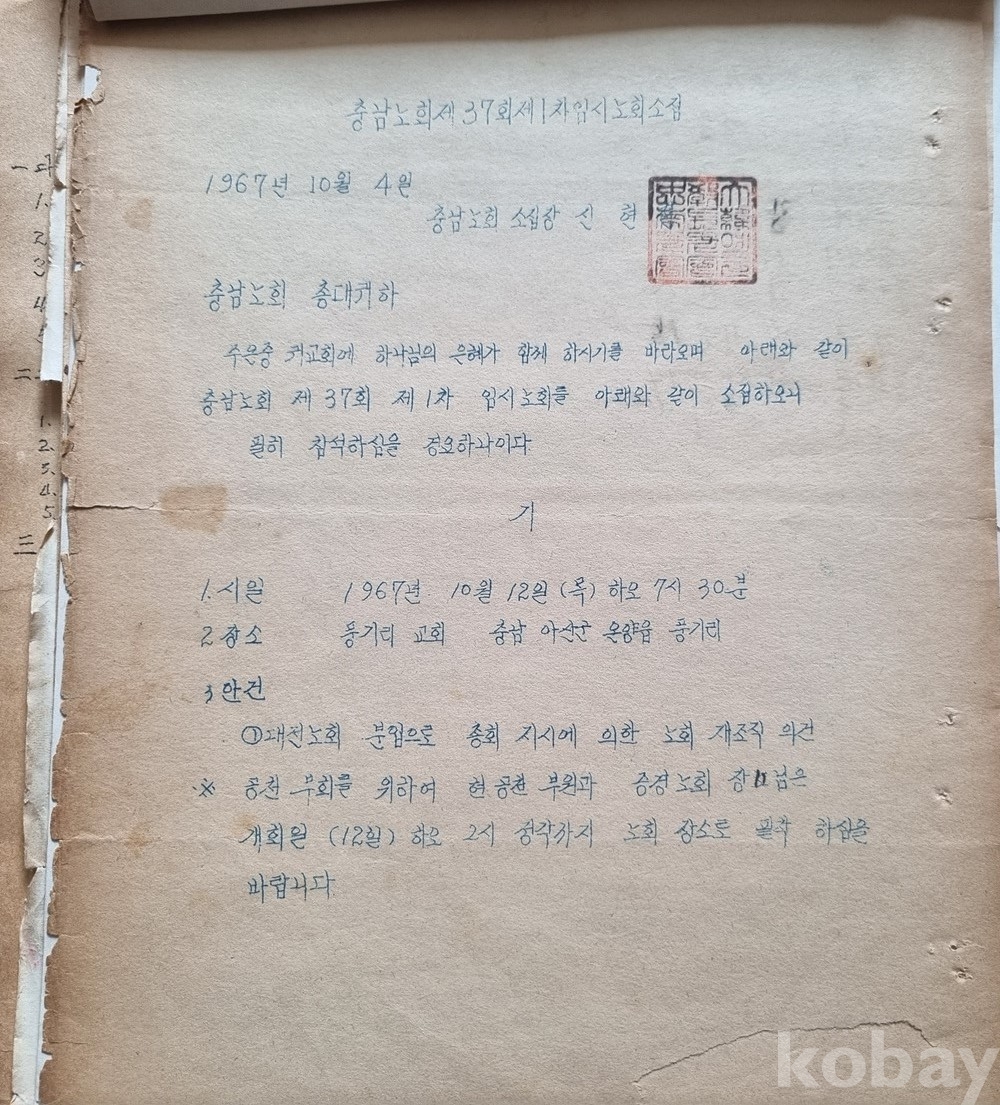 충남노회제37회제1차임시노회소집
1967년 10월 4일
충남노회 소집장 신 현
충남노회 총대귀하
주은중 귀교회에 하나님의 은혜가 함께 하시기를 바라오며 아래와 같이
충남노회 제37회 제1차 임시노회를 아래와 같이 소집하오니
필히 참석하심을 경요하나이다.
기
1. 시일 1967년 10월 12일 (목) 하오 7시 30분
2 장소 풍기리 교회 충남 아산군 온양읍 풍기리
3 안건
①대전노회 분립으로 총회 지시에 의한 노회 재조직 의건
※ 공천 부회를 위하여 현공천 부원과 증경노회 장님은
개회일 (12일) 하오 2시 정각까지 노회 장소로 필착 하심을
바랍니다.
一
1.
2
3
4
5
二
1.
2.
3.
4.
5
三
kobay